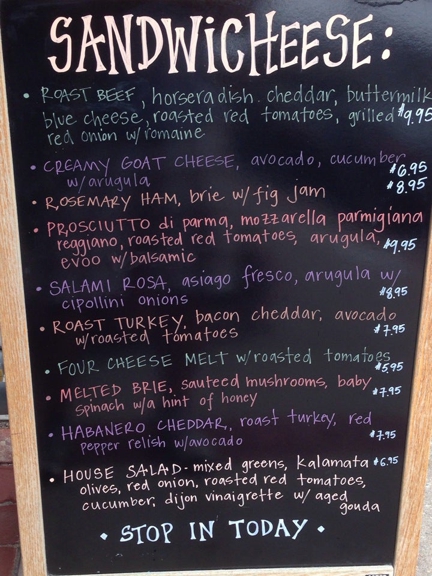 SANDWiCHEESE:
• ROAST BEEF, horseradish cheddar, buttermilk
blue cheese, roasted red tomatoes, grilled $9.95
red onion w/romaine
• CREAMY GOAT CHEESE, avocado, cucumber
w/arugula $6.95
• ROSEMARY HAM, brie w/fig jam $8.95
• PROSCIUTTO di parma, mozzarella parmigiana
reggiano, roasted red tomatoes, arugula, $9.95
evoo w/balsamic
• SALAMI ROSA, asiago fresco, arugula w/
cipollini onions $8.95
• ROAST TURKEY, bacon cheddar, avocado
w/roasted tomatoes $7.95
• FOUR CHEESE MELT w/roasted tomatoes
$5.95
• MELTED BRIE, sauteed mushrooms, baby
spinach w/a hint of honey $7.95
• HABANERO CHEDDAR, roast turkey, red
pepper relish w/avocado $7.95
• HOUSE SALAD - mixed greens, kalamata $6.95
olives, red onion, roasted red tomatoes,
cucumber, dijon vinaigrette w/ aged
gouda
• STOP IN TODAY •